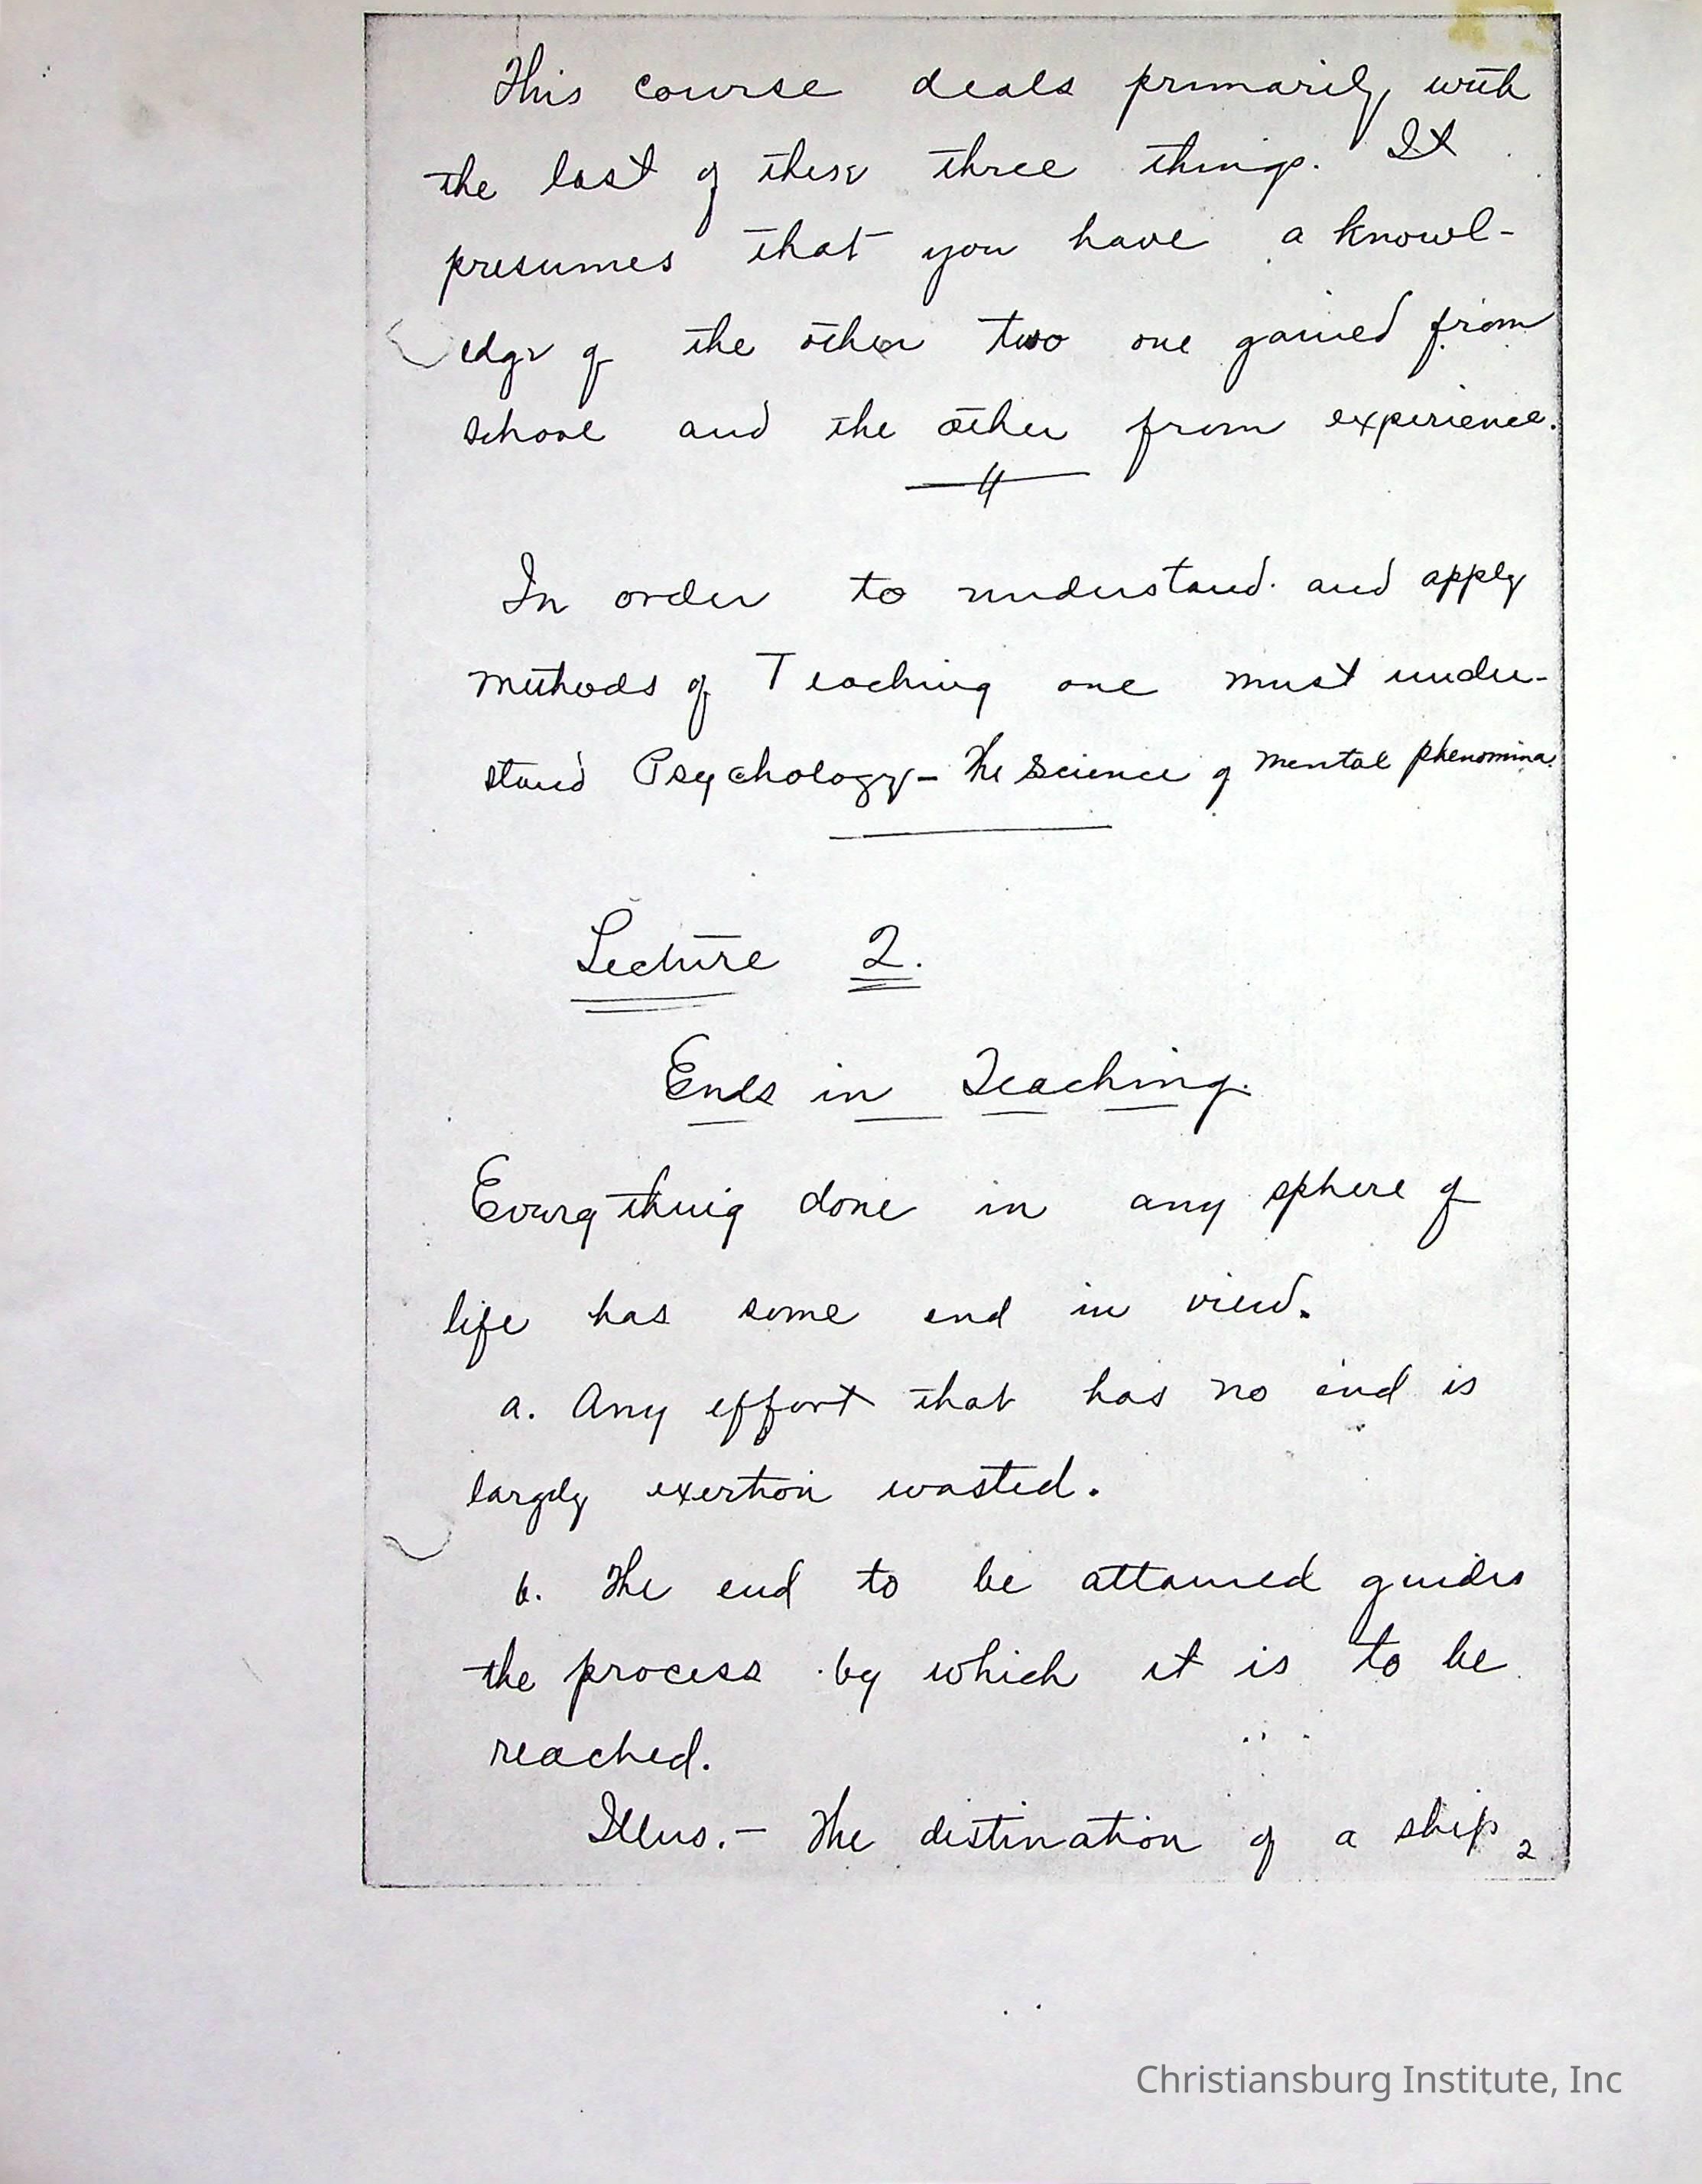 This course deals primarily with
the last of these three things. It
presumes that you have a knowl-
edge of the other two one gained from
school and the other from experience.
In order to understand and apply
methods of Teaching one must under-
stand Psychology - The Science of mental phenomina.
Lecture 2.
Ends in Teaching.
Everything done in any sphere of
life has some end in view.
a. Any effort that has no end is
largely exertion wasted.
b. The end to be attained guides
the process by which it is to be
reached.
Illus. - The distination of a ship
2
Christiansburg Institute, Inc